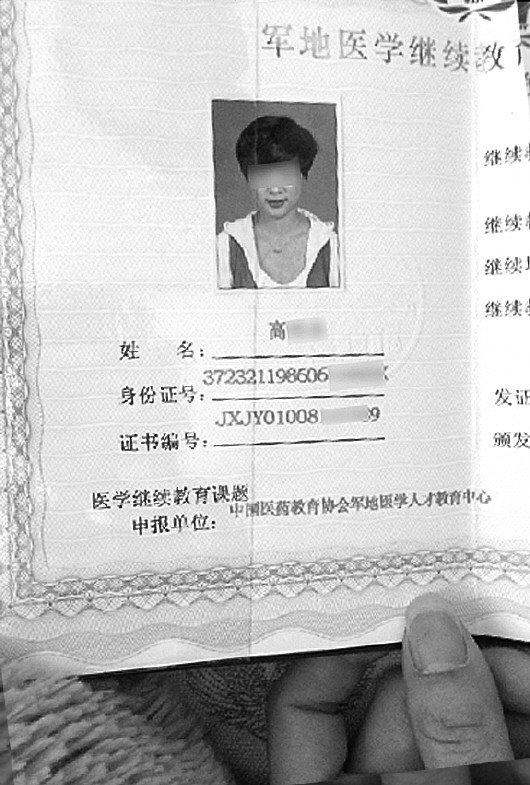 军地医学继续教
继续
继续
继续
继续
姓 名： 高
身份证号： 372321198606
证书编号： JXJY01008 9
发证
颁发
医学继续教育课题
申报单位： 中国医药教育协会军地医学人才教育中心